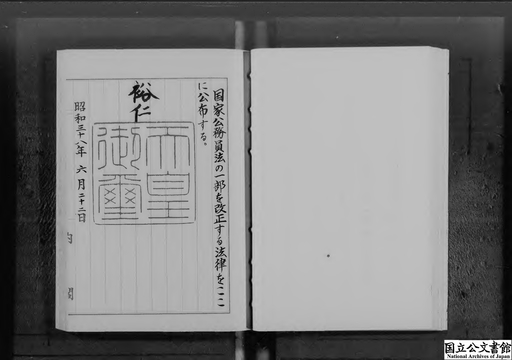 国家公務員法の一部を改正する法律をここ
に公布する。
裕仁
天皇
御璽
昭和三十八年六月二十二日
国立公文書館
National Archives of Japan